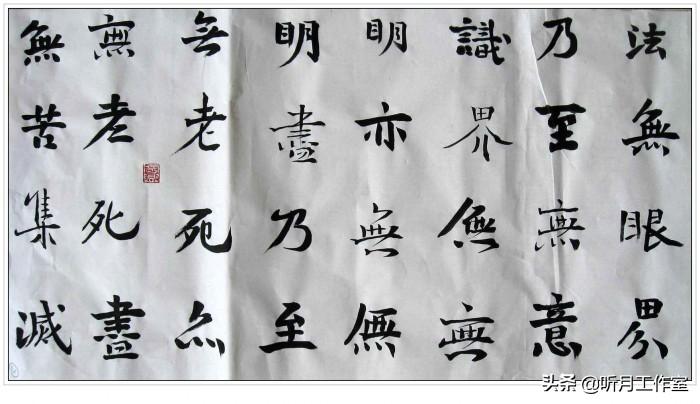 法無眼界
乃至無意
識界無無
明亦無無
明盡乃至
無老死亦
無老死盡
無苦集滅
头条 @听月工作室